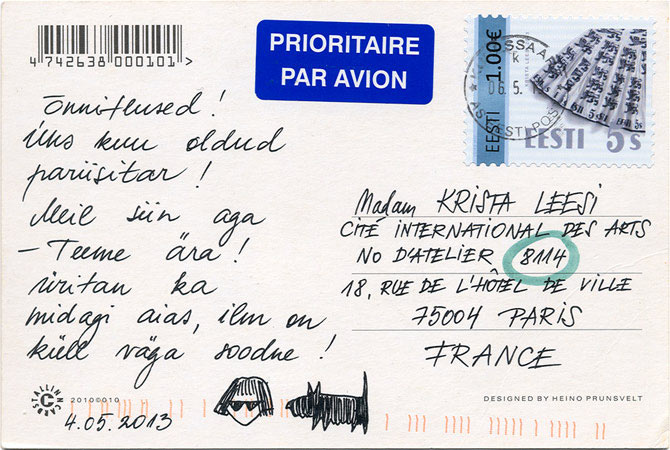 4 742638 000101 >
PRIORITAIRE
PAR AVION
1.00€
EESTI
EESTI 5s
06.5.
Õnnitlused!
Üks kuu oldud
pariisitar!
Meil siin aga
– Teeme ära!
üritan ka
midagi aias, ilm on
küll väga soodne!
Madam KRISTA LEESI
CITÉ INTERNATIONAL DES ARTS
NO D'ATELIER 8114
18, RUE DE L'HÔTEL DE VILLE
75004 PARIS
FRANCE
TALLINN CARDS
C
2010©010
DESIGNED BY HEINO PRUNSVELT
4.05.2013